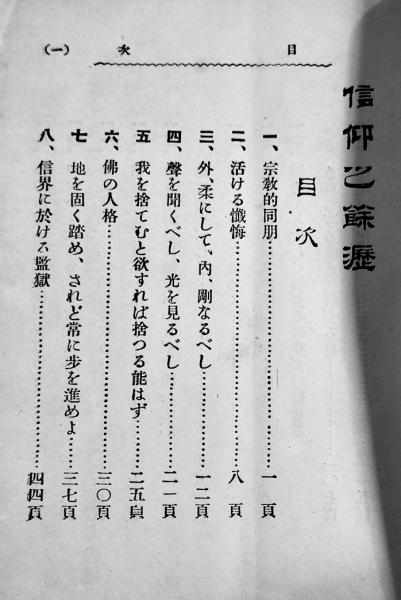 目次 (一)
信仰之餘瀝
目次
一、宗教的同朋……一頁
二、活ける懺悔……八頁
三、外、柔にして、內、剛なるべし……一二頁
四、聲を聞くべし、光を見るべし……二一頁
五 我を捨てむと欲すれば捨つる能はず……二五頁
六、佛の人格……三〇頁
七 地を固く踏め、されど常に步を進めよ……三七頁
八、信界に於ける監獄……四四頁